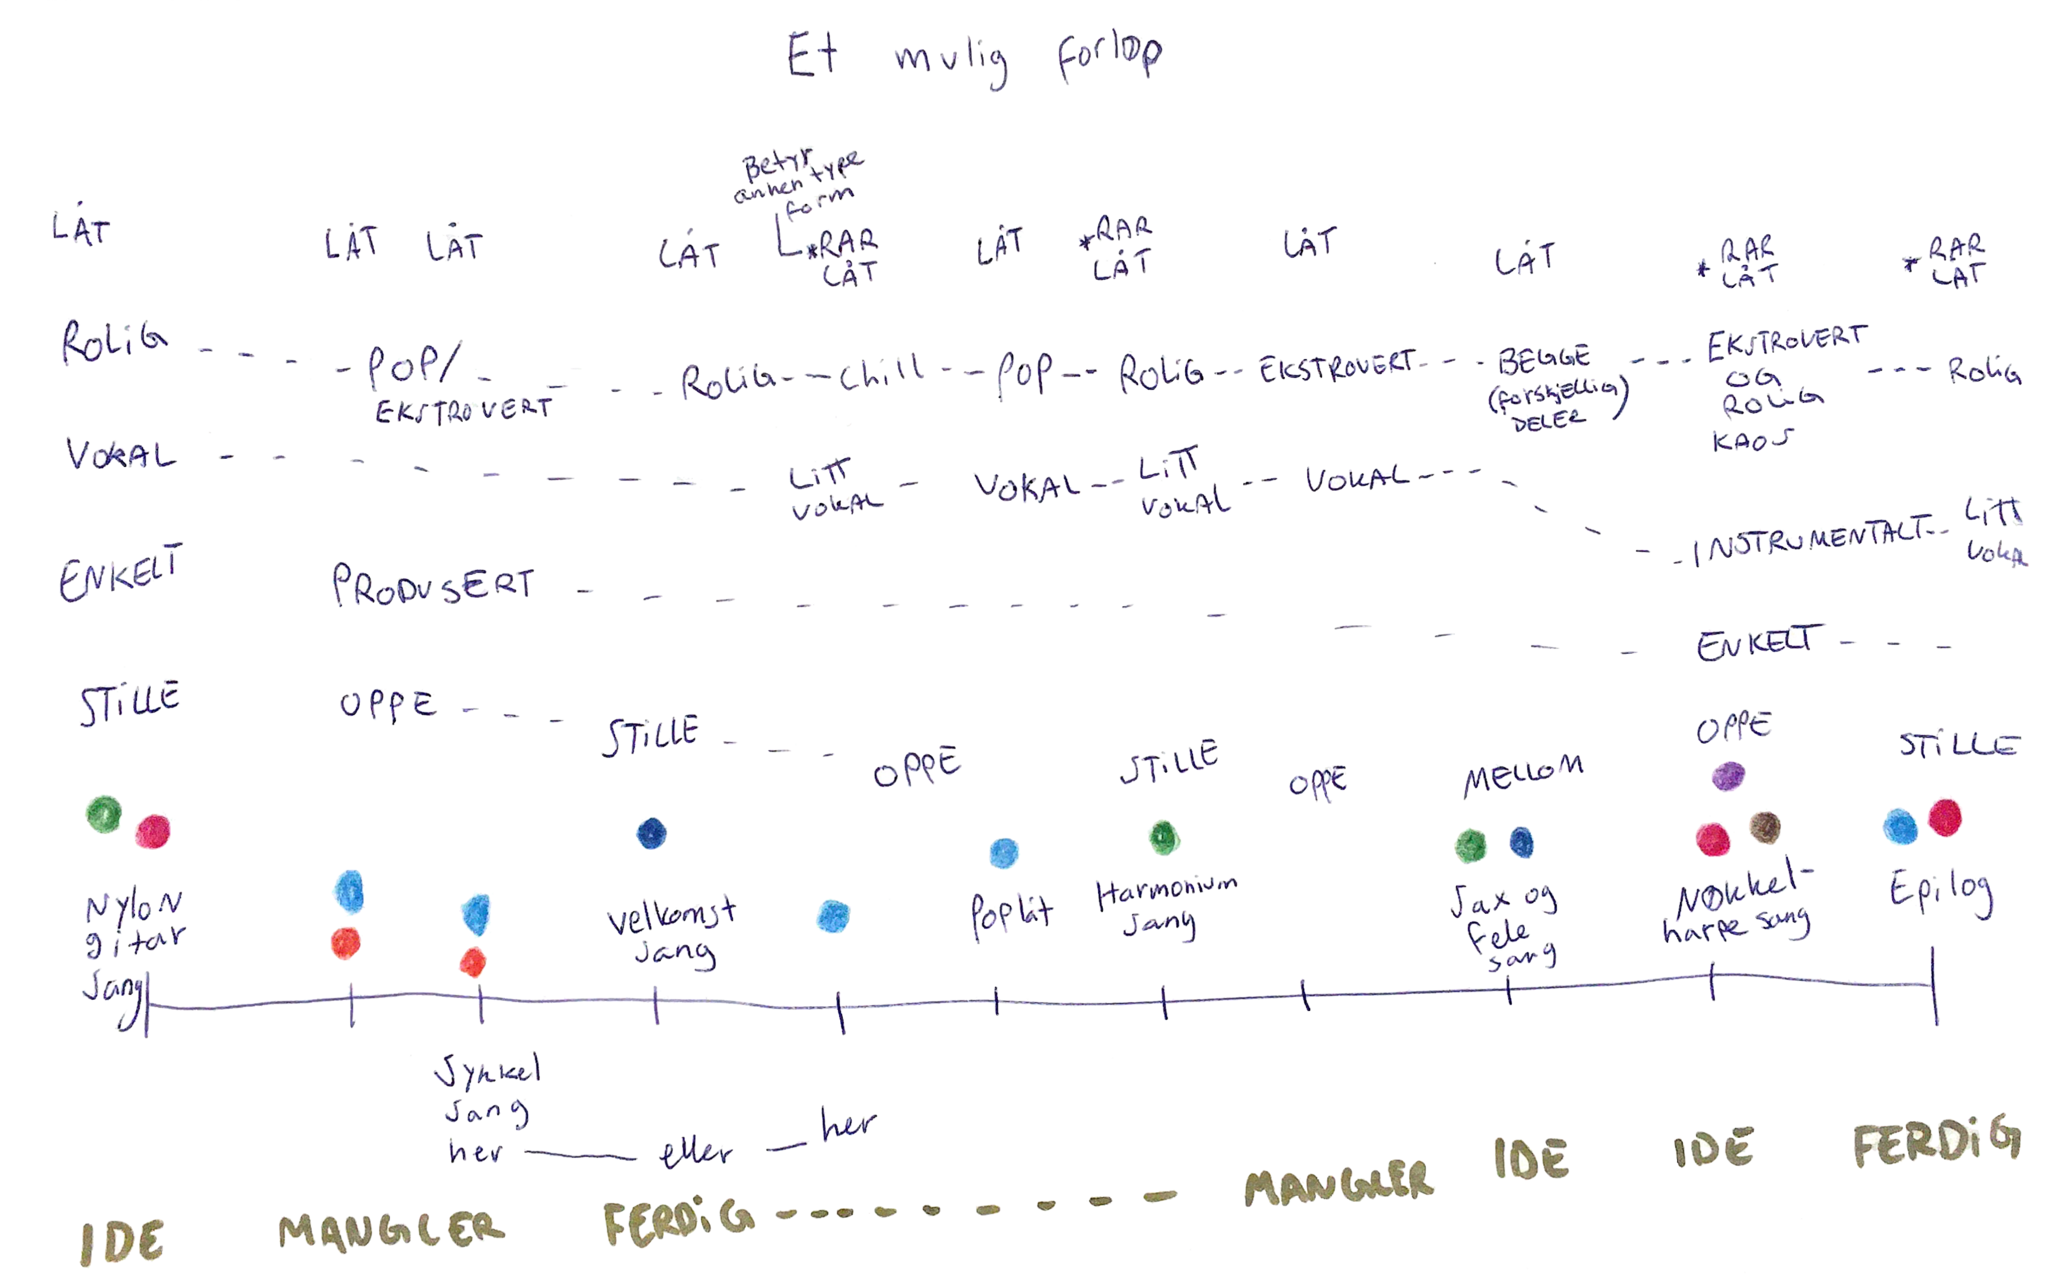 Et mulig forløp
Betyr
annen type
form
LÅT LÅT LÅT LÅT *RAR LÅT *RAR LÅT LÅT *RAR *RAR
LÅT LÅT LÅT LÅT
ROLiG - - - - POP/ - - - - ROLiG - - chill - - POP - - ROLiG - - EKSTROVERT - - - BEGGE - - - EKSTROVERT - - - ROLiG
EKSTROVERT (forskjellig) OG
DELER ROLiG
KAOS
VOKAL - - - - - - - - - LiTT - VOKAL - - LiTT - - VOKAL - - - - - - - INSTRUMENTALT - - LiTT
VOKAL VOKAL VOKAL
ENKELT PRODUSERT - - - - - - - - - - - - - ENKELT - - -
STiLLE OPPE - - - STiLLE - - - OPPE STiLLE OPPE MELLOM OPPE STiLLE
Nylon velkomst Poplåt Harmonium Sax og Nøkkel- Epilog
gitar sang sang fele harpe sang
sang sang
Synkel
sang
her — eller — her
IDE MANGLER FERDiG - - - - - - - - - MANGLER IDE IDE FERDiG